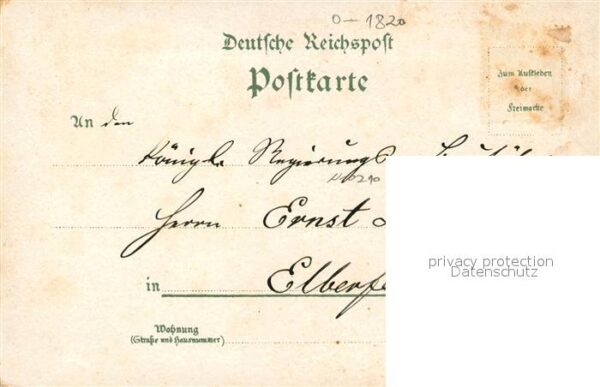 0-1820
Deutsche Reichspost
Postkarte
Zum Aufkleben
der
Freimarke
An den
Königl. Regierungs
Herrn Ernst
privacy protection
Datenschutz
in Elberf
Wohnung
(Straße und Hausnummer)